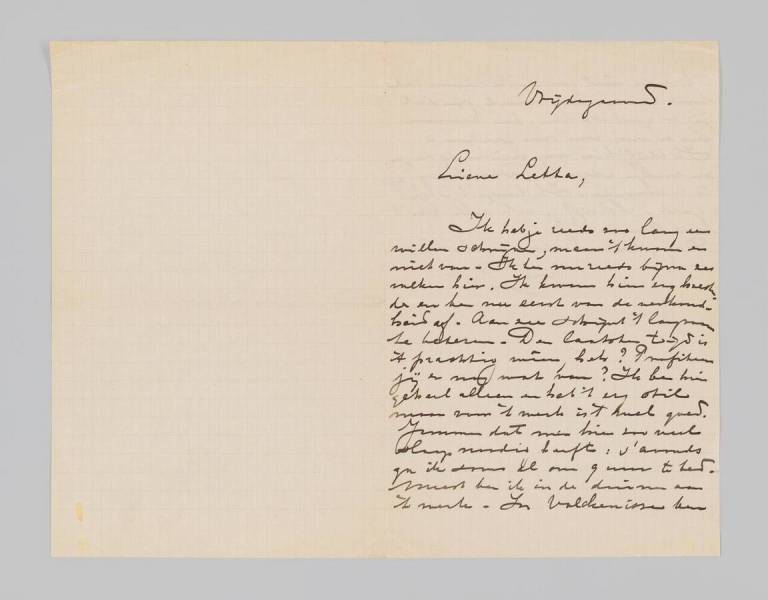 Vrijdagavond.
Lieve Letta,
Ik heb je reeds zoo lang een
willen schrijven, maar 't kwam er
niet van. Ik ben nu reeds bijna zes
weken hier. Ik kwam hier erg
de en ben nu eerst van de verkoud-
heid af. Aan zee schijnt 't langzaam
te beteren. Den laatsten tijd is
't prachtig weer, hè? Profiteer
jij er nog wat van? Ik ben hier
geheel alleen en heb 't erg stil
maar voor 't werk is 't heel goed.
Jammer dat men hier zoo veel
slaap noodig heeft: s'avonds
ga ik soms al om 9 uur te bed.
Meest ben ik in de duinen aan
't werk. In Valkenisse ben